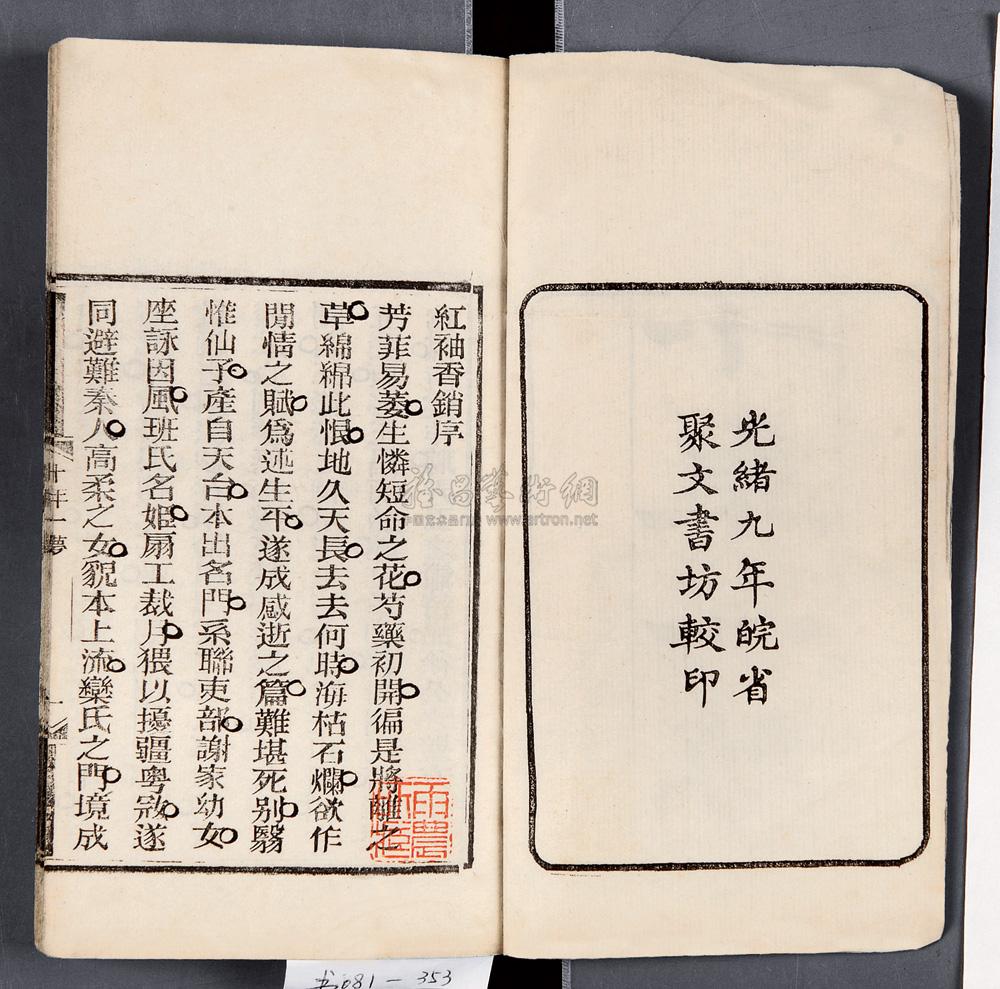 光緒九年皖省
聚文書坊較印
紅袖香銷序
芳菲易萎。生憐短命之花。芍藥初開。徧是將離之
草。綿綿此恨。地久天長。去去何時。海枯石爛。欲作
閒情之賦。爲述生平。遂成感逝之篇。難堪死别。翳
惟仙子。產自天台。本出名門。系聯吏部。謝家幼女。
座詠因風。班氏名姬。扇工裁月。猥以擾疆粵寇。遂
同避難秦人。高柔之女。貌本上流。欒氏之門。境成
十年一夢
一
雨農
雅昌藝術網
中国艺术品门户 www.artron.net
书081-353